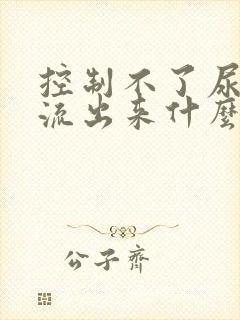 控制不了尿
流出来什麼
公子齊